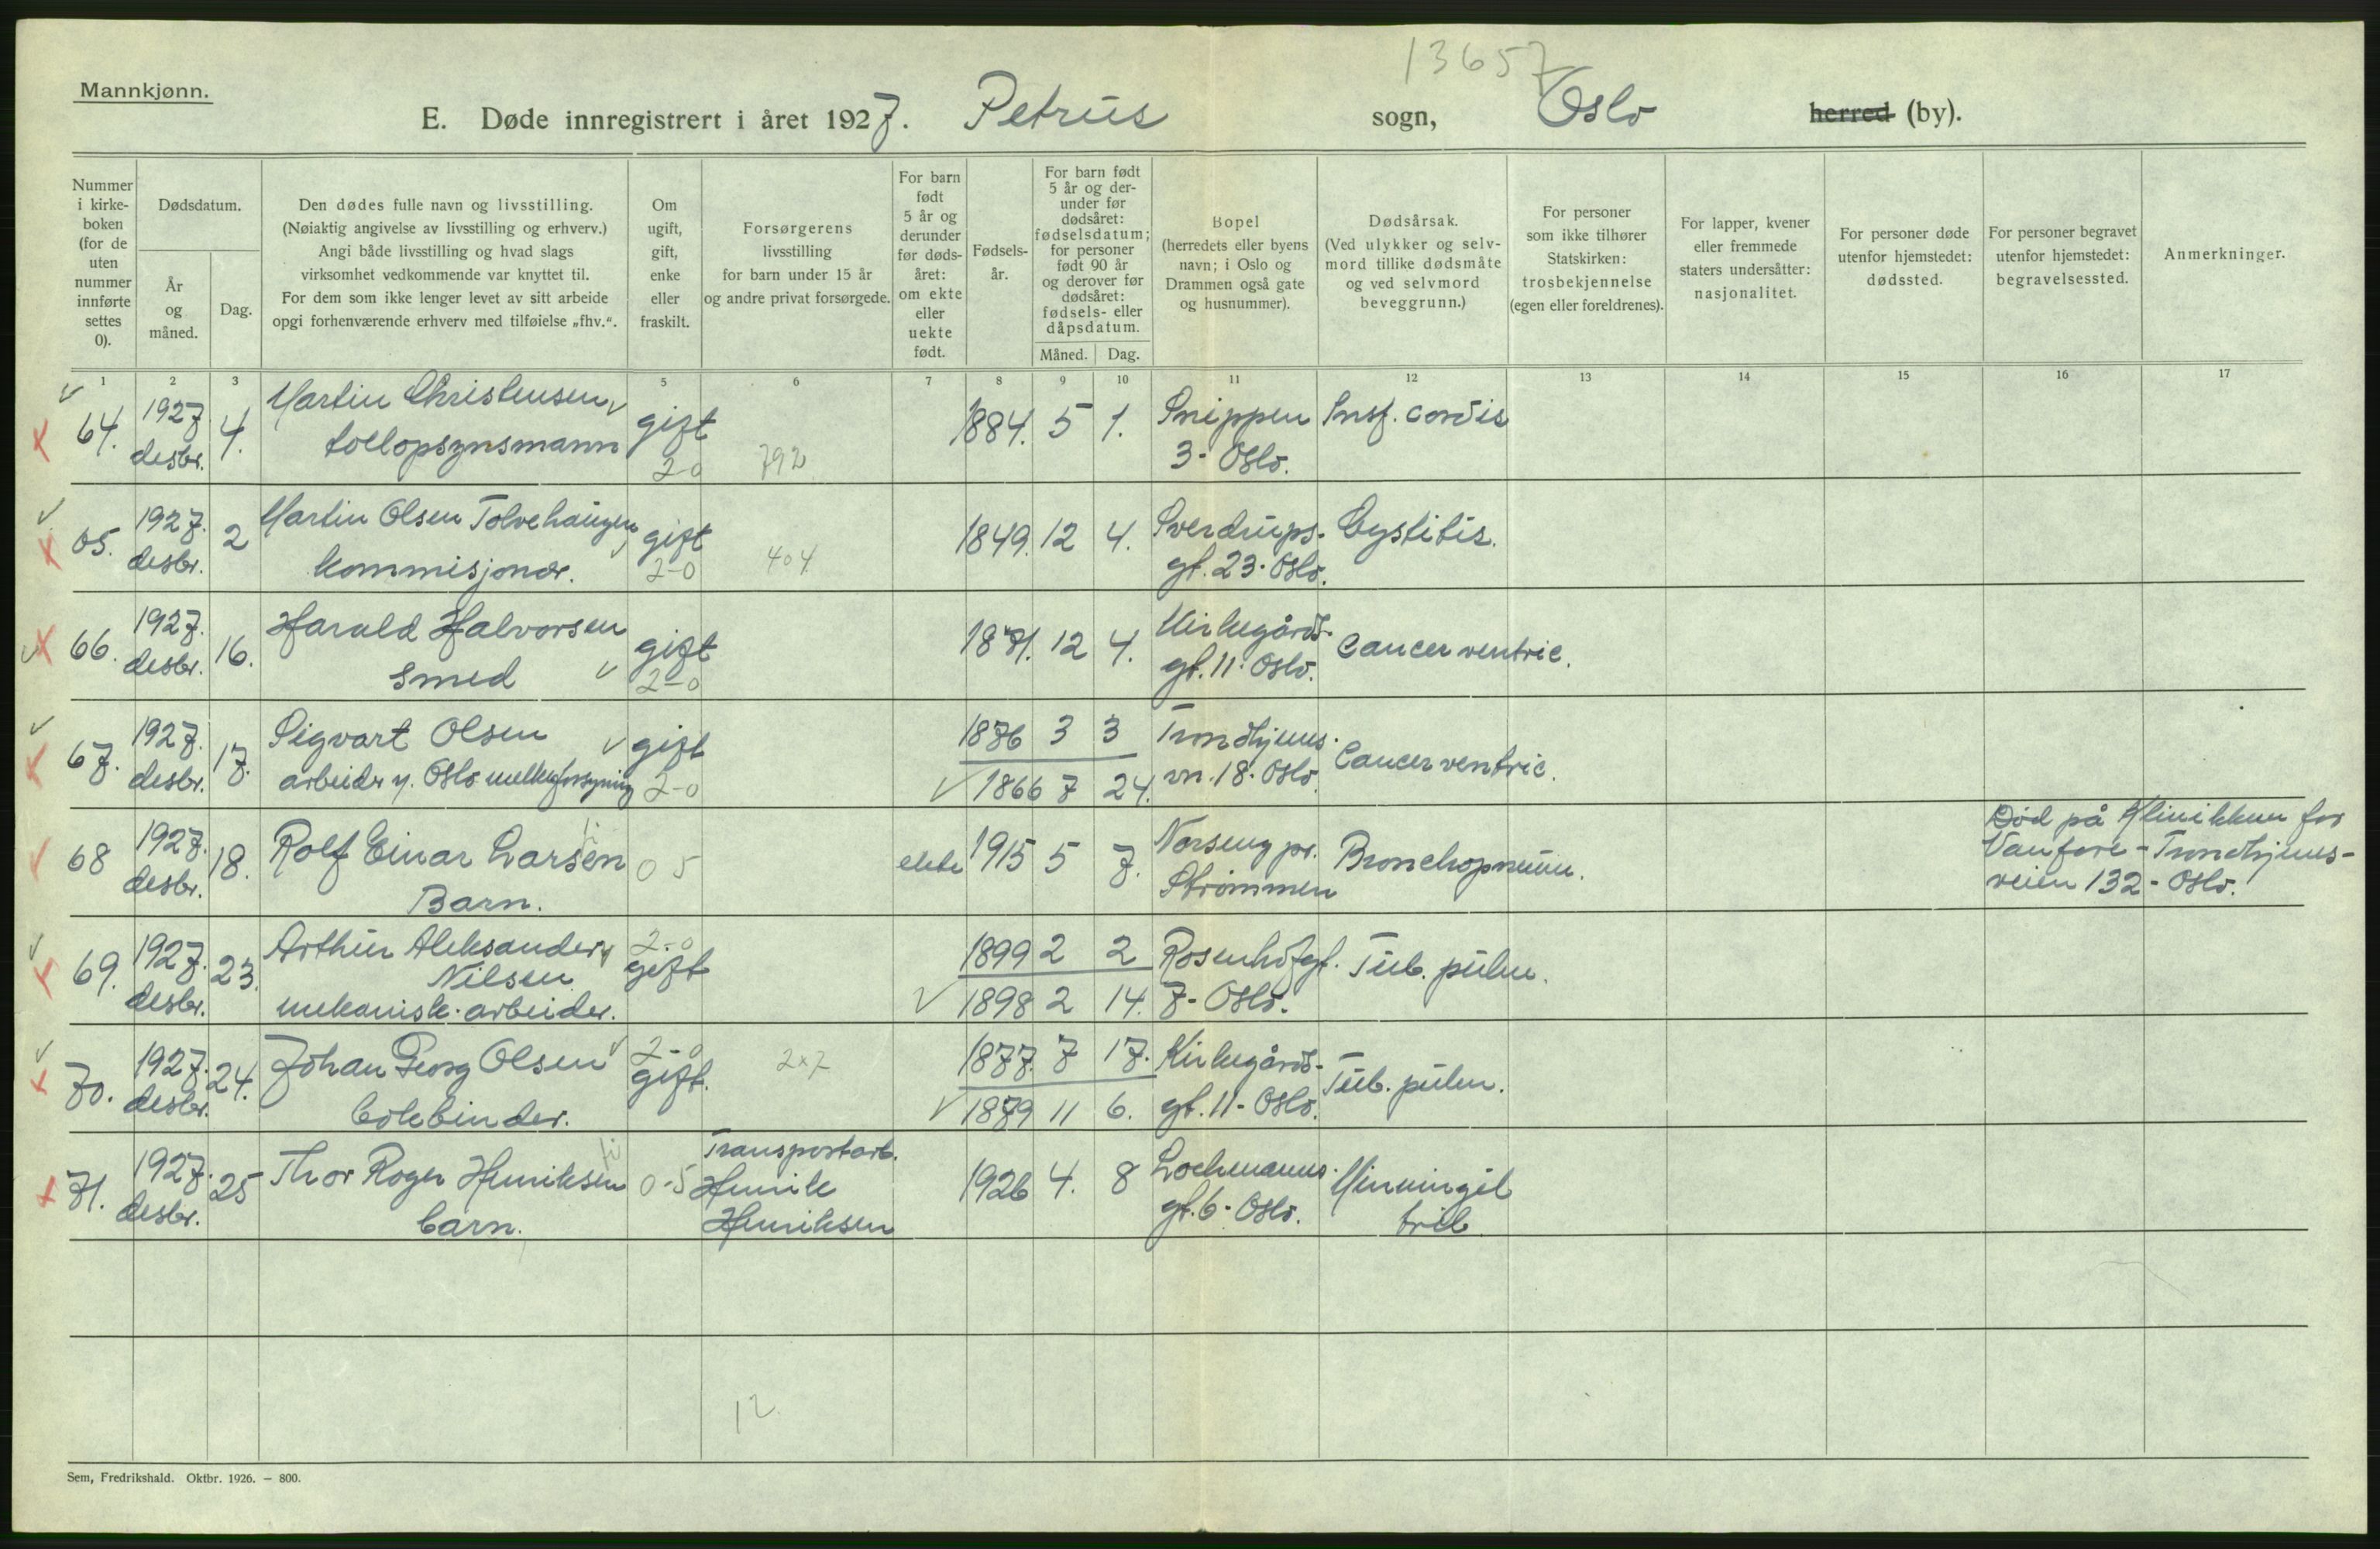 13657
Mannkjønn.
E. Døde innregistrert i året 1927. Petrus sogn, Oslo herred (by).
Nummer i kirke-boken (for de uten nummer innførte settes 0).
Dødsdatum.
År og måned.
Dag.
Den dødes fulle navn og livsstilling.
(Nøiaktig angivelse av livsstilling og erhverv.)
Angi både livsstilling og hvad slags
virksomhet vedkommende var knyttet til.
For dem som ikke lenger levet av sitt arbeide
opgi forhenværende erhverv med tilføielse „fhv.“.
Om ugift, gift, enke eller fraskilt.
Forsørgerens
livsstilling
for barn under 15 år
og andre privat forsørgede.
For barn født 5 år og derunder før døds-året: om ekte eller uekte født.
Fødsels-år.
For barn født 5 år og der-under før dødsåret: fødselsdatum; for personer født 90 år og derover før dødsåret: fødsels- eller dåpsdatum.
Måned. Dag.
Bopel
(herredets eller byens
navn; i Oslo og
Drammen også gate
og husnummer).
Dødsårsak.
(Ved ulykker og selv-
mord tillike dødsmåte
og ved selvmord
beveggrunn.)
For personer
som ikke tilhører
Statskirken:
trosbekjennelse
(egen eller foreldrenes).
For lapper, kvener
eller fremmede
staters undersåtter:
nasjonalitet.
For personer døde
utenfor hjemstedet:
dødssted.
For personer begravet
utenfor hjemstedet:
begravelsessted.
Anmerkninger.
1 2 3 5 6 7 8 9 10 11 12 13 14 15 16 17
64. 1927 desbr. 4. Martin Christensen
tollopsynsmann
gift 2-0 792 1884. 5 1. Snippen
3- Oslo.
Insf. cordis
65. 1927. desbr. 2 Martin Olsen Tolvehaugen
kommisjonær.
gift 2-0 404 1849. 12 4. Sverdrups-
gt. 23- Oslo.
Cystitis.
66. 1927. desbr. 16. Harald Halvorsen
smed
gift 2-0 1871. 12 4. Kirkegårds-
gt. 11- Oslo.
Cancer ventric.
67. 1927. desbr. 17. Sigvart Olsen
arbeider v. Oslo melkeforsyning
gift 2-0 1876 3 3
1866 7 24.
Trondhjems-
vn. 18- Oslo.
Cancer ventric.
68 1927. desbr. 18. Rolf Einar Larsen
Barn.
0 5 ekte 1915 5 7. Norseng pr.
Strømmen
Bronchopneum.
Død på Klinikken for
Vanføre - Trondhjems-
veien 132 - Oslo.
69. 1927. desbr. 23. Arthur Aleksander
Nilsen
mekanisk. arbeider.
2-0 gift 1899 2 2
1898 2 14.
Rosenhofgt.
7- Oslo.
Tub. pulm.
70. 1927. desbr. 24. Johan Georg Olsen
bokbinder.
2-0 gift. 2x7 1877. 7 17.
1879 11 6.
Kirkegårds-
gt. 11- Oslo.
Tub. pulm.
71. 1927. desbr. 25 Thor Roger Henriksen
barn.
0-5 Transportarb.
Henrik
Henriksen
1926 4. 8 Lochmanns-
gt. 6- Oslo.
Minningit
tub.
12
Sem, Fredrikshald. Oktbr. 1926. — 800.